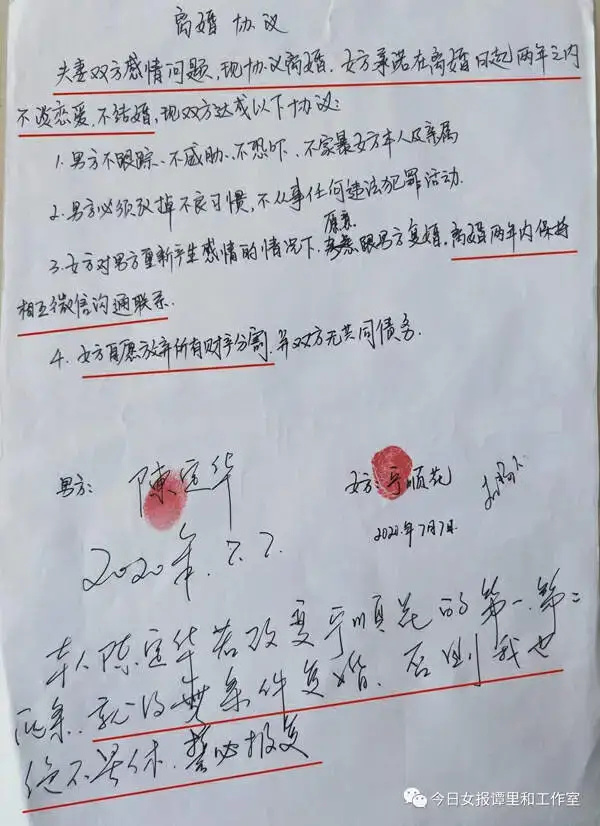 离婚协议
夫妻双方感情问题,现协议离婚.女方承诺在离婚日起两年之内
不谈恋爱.不结婚,现双方达成以下协议:
1.男方不跟踪、不威胁、不恐吓、不家暴女方本人及亲属
2.男方必须改掉不良习惯,不从事任何违法犯罪活动.
愿意
3.女方对男方重新产生感情的情况下,跟男方复婚,离婚两年内保持
相互微信沟通联系.
4.女方自愿放弃所有财产分割.并双方无共同债务.
男方: 陳定华
女方:于顺花
2020年7月7日
2020年.7.7.
本人陈定华若改变于顺花的第一.第二
条.就得无条件复婚.否则我也
绝不罢休.誓必报复
今日女报谭里和工作室